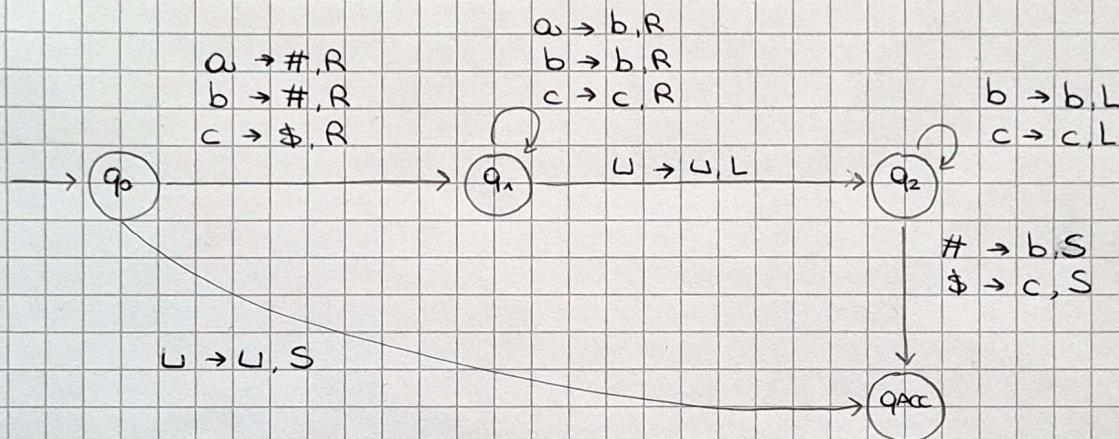 a → #, R
b → #, R
c → $, R
a → b, R
b → b, R
c → c, R
b → b, L
c → c, L
q0
q1
⊔ → ⊔, L
q2
# → b, S
$ → c, S
⊔ → ⊔, S
qACC